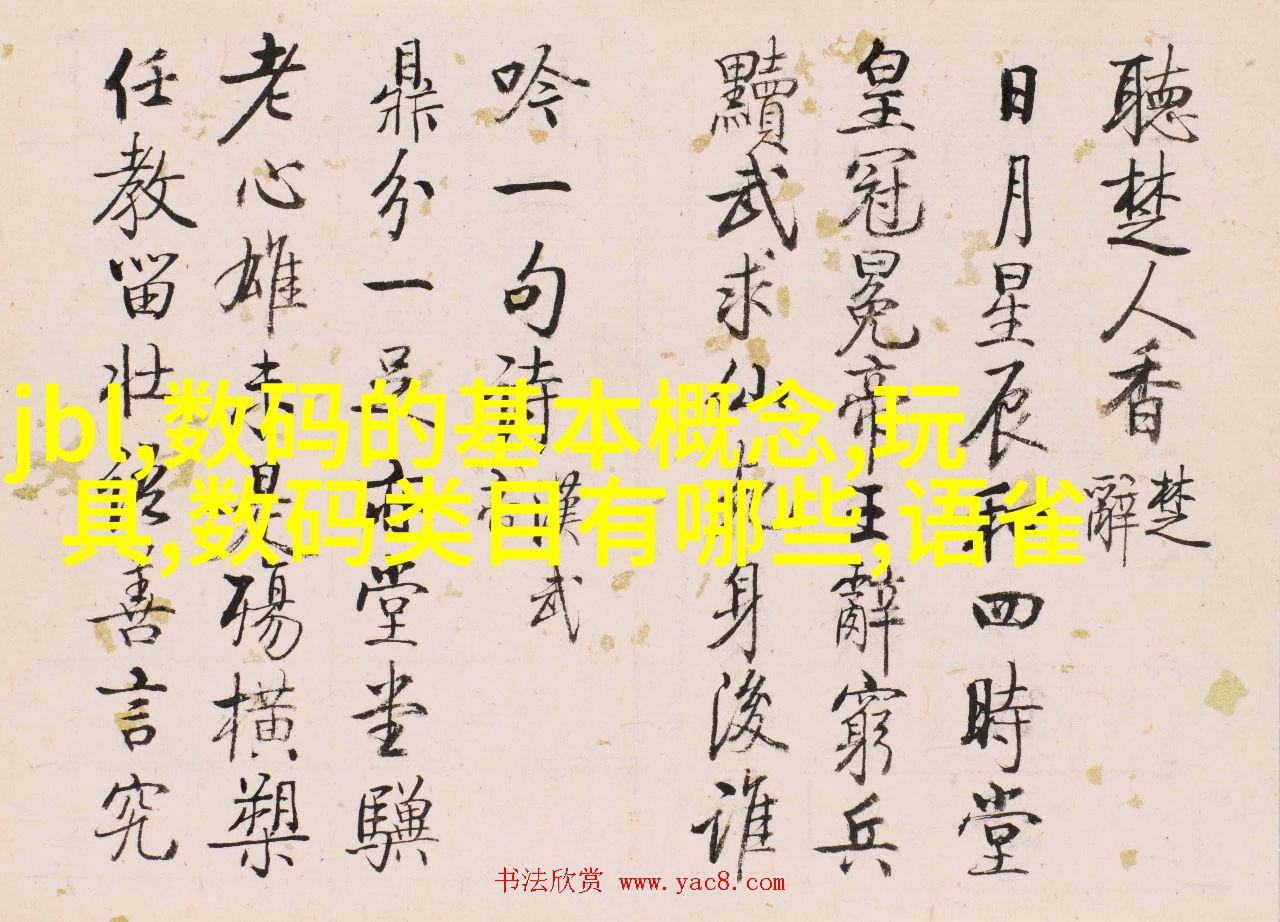 聽楚人香 楚辭
日月星辰和四時堂
皇冠冕帝王辭窮兵
黷武求仙身後誰
吟一句詩 漢武帝
鼎分一足亦堂堂驥
老心雄未是殤橫槊
任教留壯善言究
jbl,数码的基本概念,玩
具,数码类目有哪些,语雀
书法欣赏 www.yac8.com